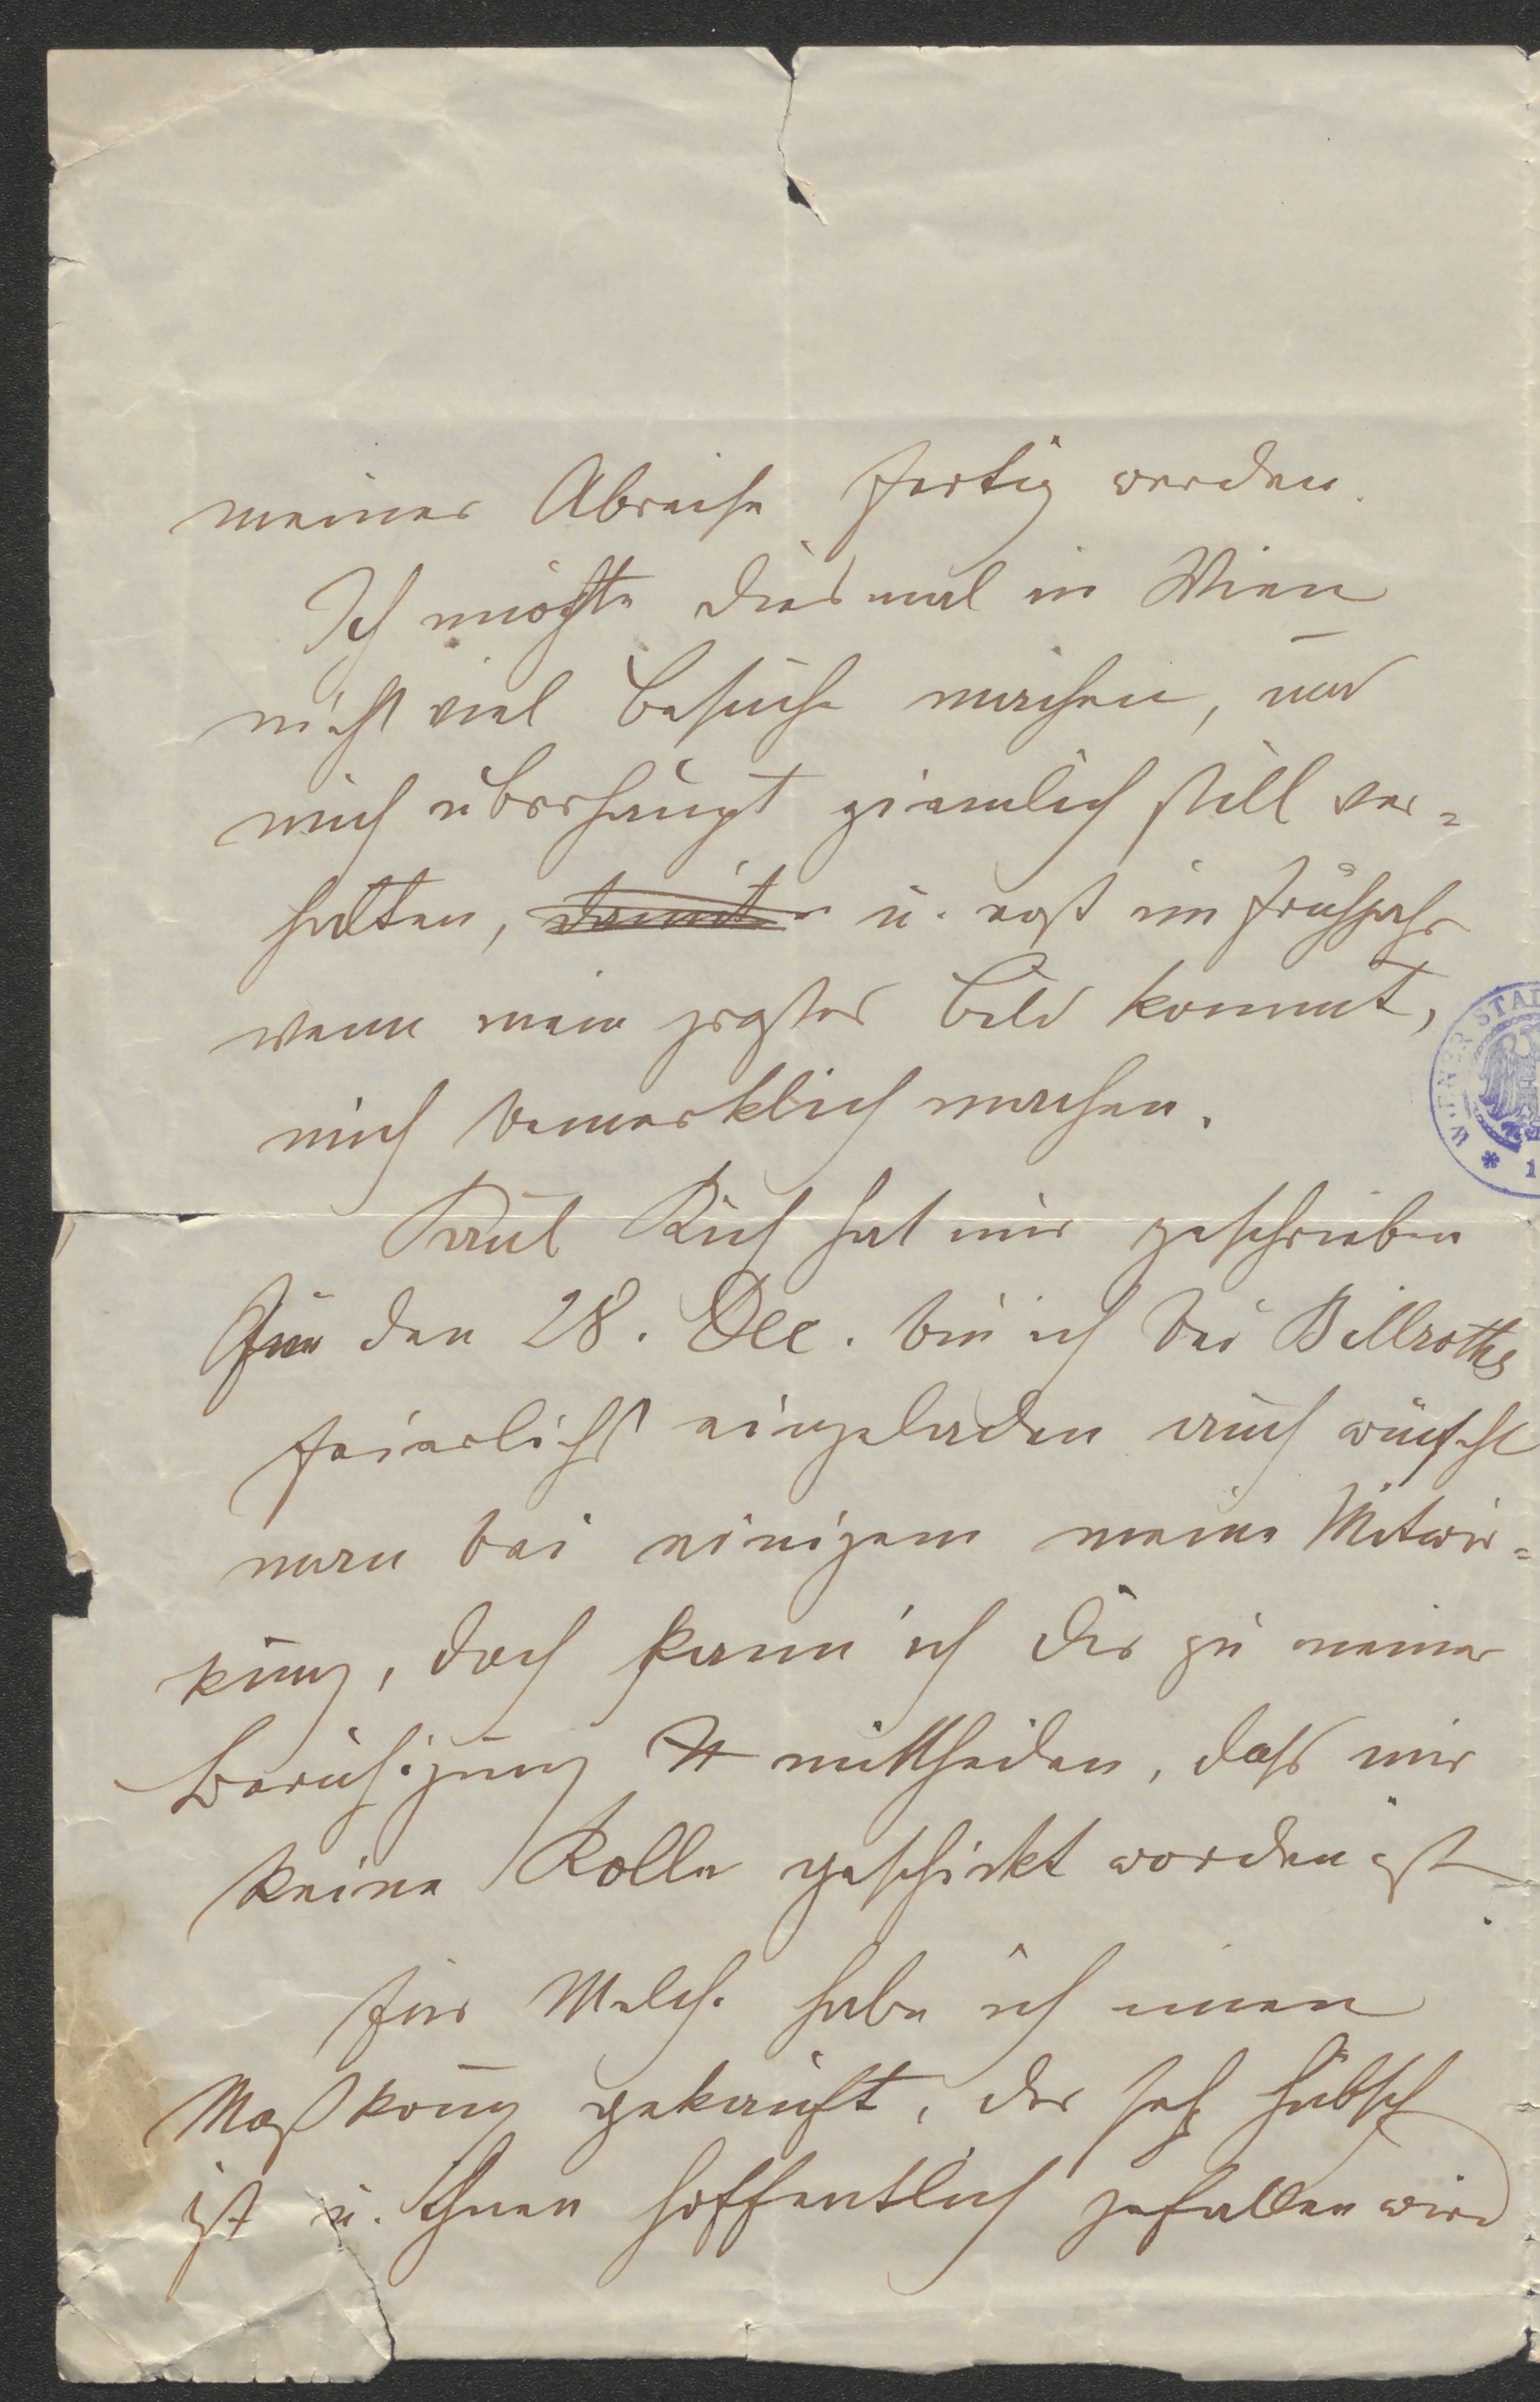 meiner Abreise fertig werden.
Ich möchte diesmal in Wien
nicht viel Besuche machen, und
mich überhaupt ziemlich still ver-
halten, damit u. erst im Frühjahr
wenn mein erstes Bild kommt,
mich bemerklich machen.
Paul hat mir geschrieben
Für den 28. Dec. bin ich bei Billroths
feierlichst eingeladen auch wünscht
man bei einigem meine Mitwir-
kung, doch kann ich dir zu meiner
Beruhigung mittheilen, dass mir
keine Rolle geschickt worden ist
.
für Melch. habe ich einen
Maßkrug gekauft, der sehr hübsch
ist u. Ihnen hoffentlich gefallen wird
WIENER STA
* 1